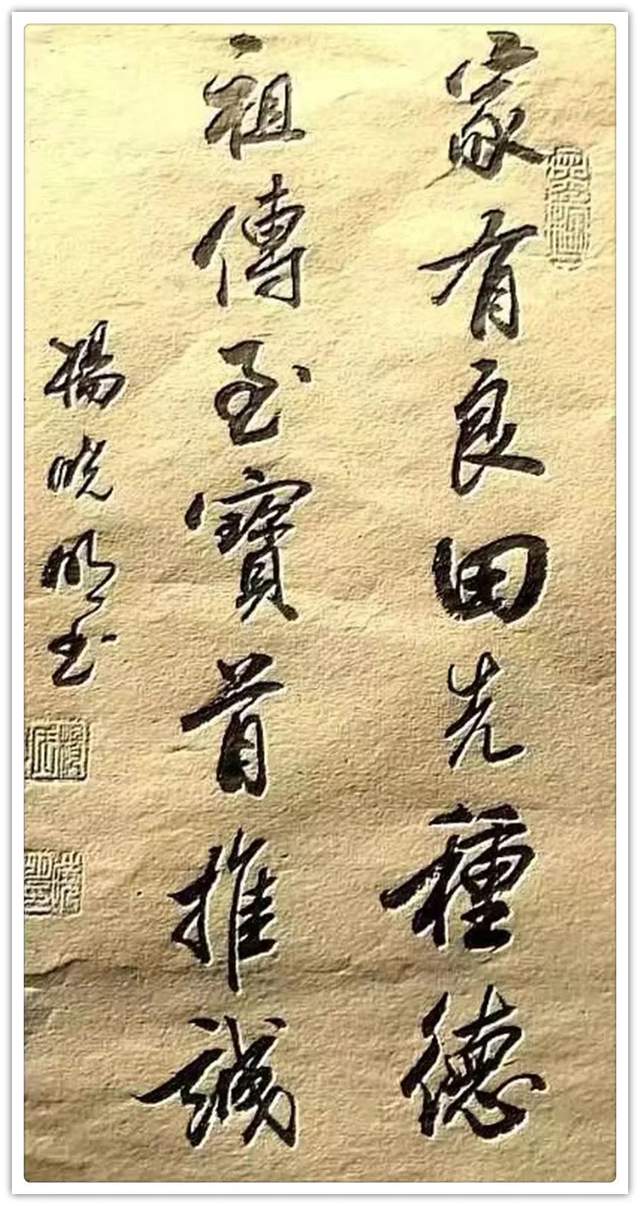 家有良田先種德
祖傳至寶首推誠
楊晓明书